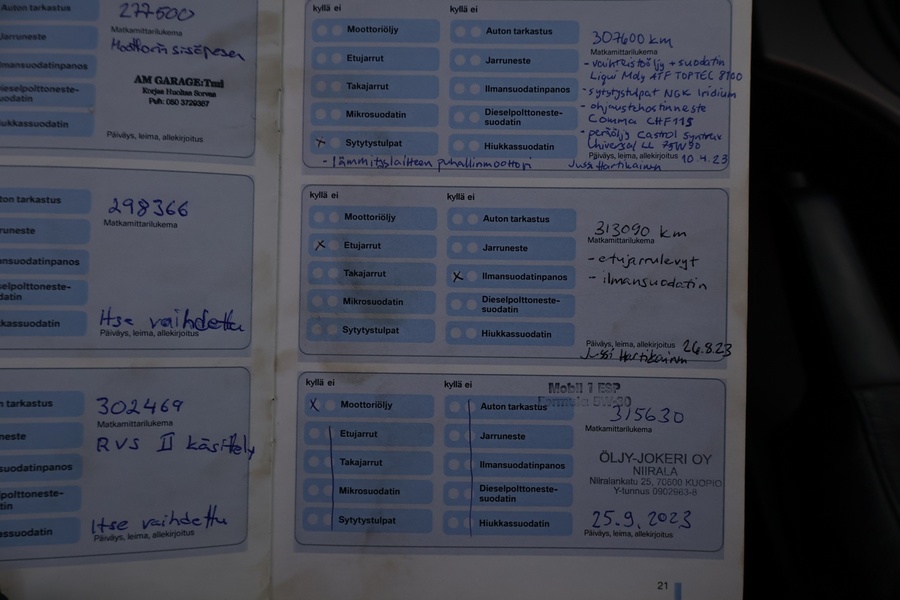 Auton tarkastus
277500
Matkamittarilukema
Jarruneste
Moottorin sisäpesu
lmansuodatinpanos
AM GARAGE:Tmi
Korjaa Huoltaa Sorvaa
Puh: 050 3729367
ieselpolttoneste-
uodatin
iukkassuodatin
Päiväys, leima, allekirjoitus
uton tarkastus
298366
Matkamittarilukema
rruneste
nsuodatinpanos
selpolttoneste-
datin
kassuodatin
Itse vaihdettu
Päiväys, leima, allekirjoitus
n tarkastus
302469
Matkamittarilukema
neste
RVS II käsittely
suodatinpanos
polttoneste-
tin
assuodatin
Itse vaihdettu
Päiväys, leima, allekirjoitus
kyllä ei
kyllä ei
Moottoriöljy
Auton tarkastus
307600 km
Matkamittarilukema
Etujarrut
Jarruneste
- vaihteistoöljy + suodatin
Liqui Moly ATF TOPTEC 8100
Takajarrut
Ilmansuodatinpanos
- sytytystulpat NGK Iridium
- ohjaustehostinneste
Mikrosuodatin
Dieselpolttoneste-
suodatin
Comma CHF 11S
- peräöljy Castrol Syntrax
Universal LL 75W90
x Sytytystulpat
Hiukkassuodatin
Päiväys, leima, allekirjoitus 10.4.23
- lämmityslaitteen puhallinmoottori
Jussi Hartikainen
kyllä ei
kyllä ei
Moottoriöljy
Auton tarkastus
313090 km
Matkamittarilukema
x Etujarrut
Jarruneste
- etujarrulevyt
Takajarrut
x Ilmansuodatinpanos
- ilmansuodatin
Mikrosuodatin
Dieselpolttoneste-
suodatin
Sytytystulpat
Hiukkassuodatin
Päiväys, leima, allekirjoitus 26.8.23
Jussi Hartikainen
kyllä ei
kyllä ei
Mobil 1 ESP
Formula 5W-30
x Moottoriöljy
Auton tarkastus
315630
Matkamittarilukema
Etujarrut
Jarruneste
Takajarrut
Ilmansuodatinpanos
ÖLJY-JOKERI OY
NIIRALA
Niiralankatu 25, 70600 KUOPIO
Y-tunnus 0902963-8
Mikrosuodatin
Dieselpolttoneste-
suodatin
Sytytystulpat
Hiukkassuodatin
25.9.2023
Päiväys, leima, allekirjoitus
21